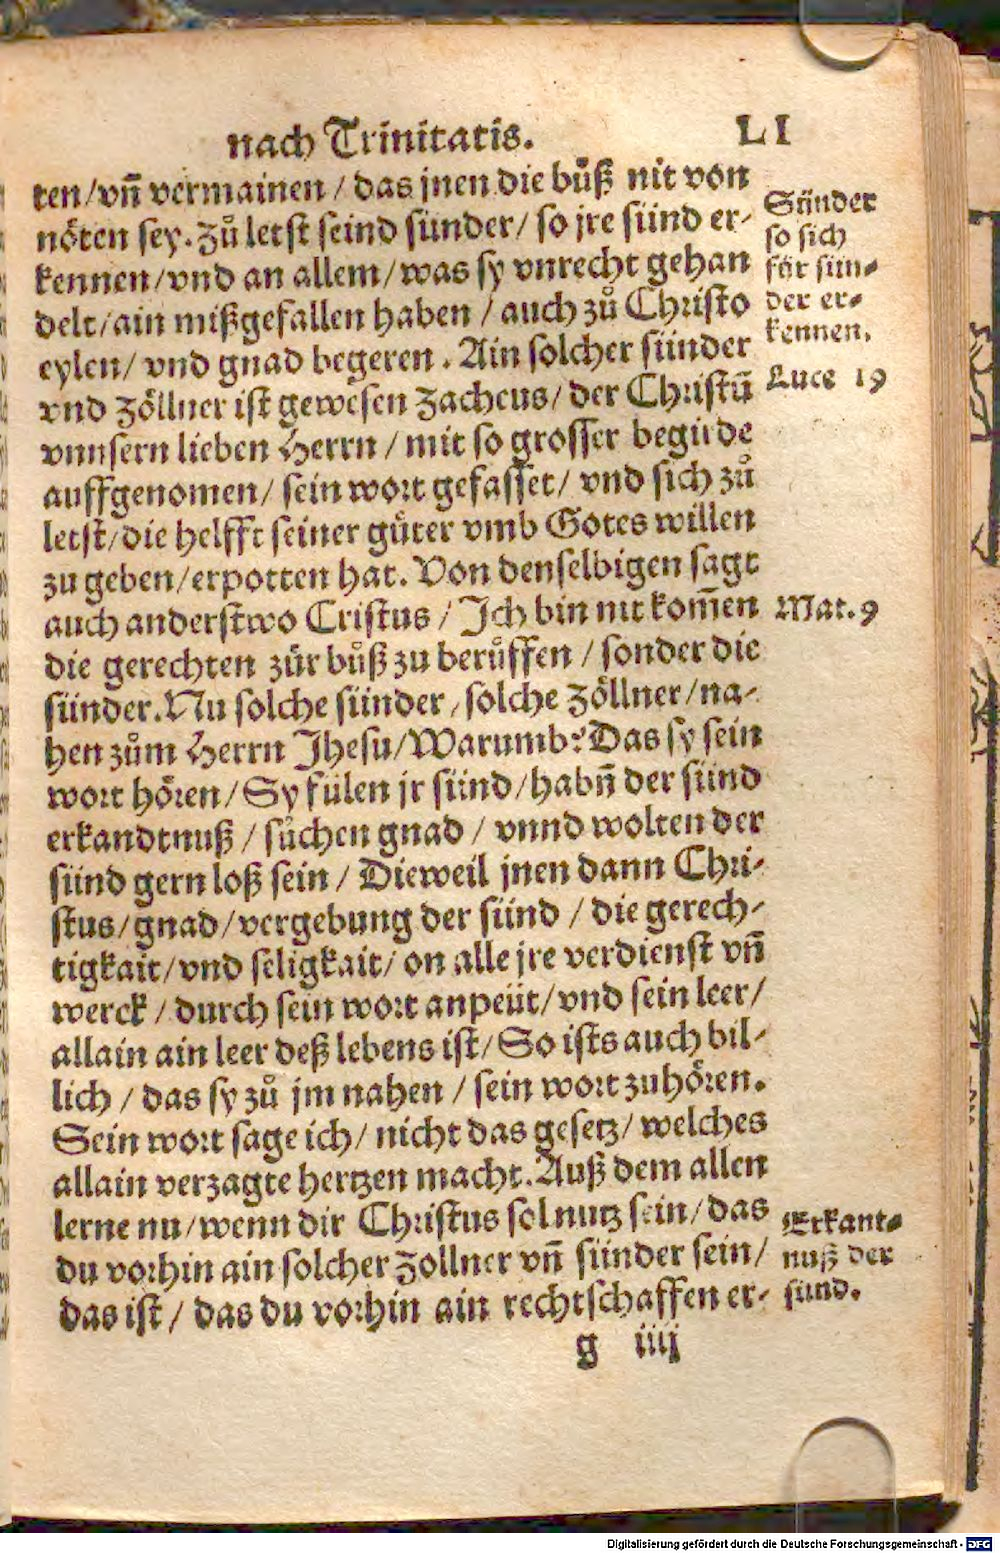 nach Trinitatis. LI
ten/vñ vermainen / das jnen die bůß nit von
nöten sey. Zů letst seind sünder/ so jre sünd er-
kennen/vnd an allem/was sy vnrecht gehan
delt/ain mißgefallen haben / auch zů Christo
eylen/ vnd gnad begeren. Ain solcher sünder
vnd Zöllner ist gewesen Zacheus/ der Christū
vnnsern lieben Herrn / mit so grosser begirde
auffgenomen/ sein wort gefasset/ vnd sich zů
letst/die helfft seiner güter vmb Gotes willen
zu geben/erpotten hat. Von denselbigen sagt
auch anderstwo Cristus / Ich bin nit kom̄en
die gerechten zůr bůß zu berůffen / sonder die
sünder. Nu solche sünder, solche Zöllner/na-
hen zům Herrn Jhesu/Warumb? Das sy sein
wort hören/Sy fülen jr sünd/habñ der sünd
erkandtnuß / sůchen gnad / vnnd wolten der
sünd gern loß sein / Dieweil jnen dann Chri-
stus/gnad/vergebung der sünd / die gerech-
tigkait/vnd seligkait/ on alle jre verdienst vñ
werck / durch sein wort anpeüt/vnd sein leer/
allain ain leer deß lebens ist/ So ists auch bil-
lich / das sy zů jm nahen / sein wort zuhören.
Sein wort sage ich/ nicht das gesetz/ welches
allain verzagte hertzen macht. Auß dem allen
lerne nu/wenn dir Christus sol nutz sein/das
du vorhin ain solcher Zollner vñ sünder sein/
das ist / das du vorhin ain rechtschaffen er-
g iiij
Sünder
so sich
für sün-
der er-
kennen.
Luce 19
Mat. 9
Erkant-
nuß der
sünd.
Digitalisierung gefördert durch die Deutsche Forschungsgemeinschaft - DFG